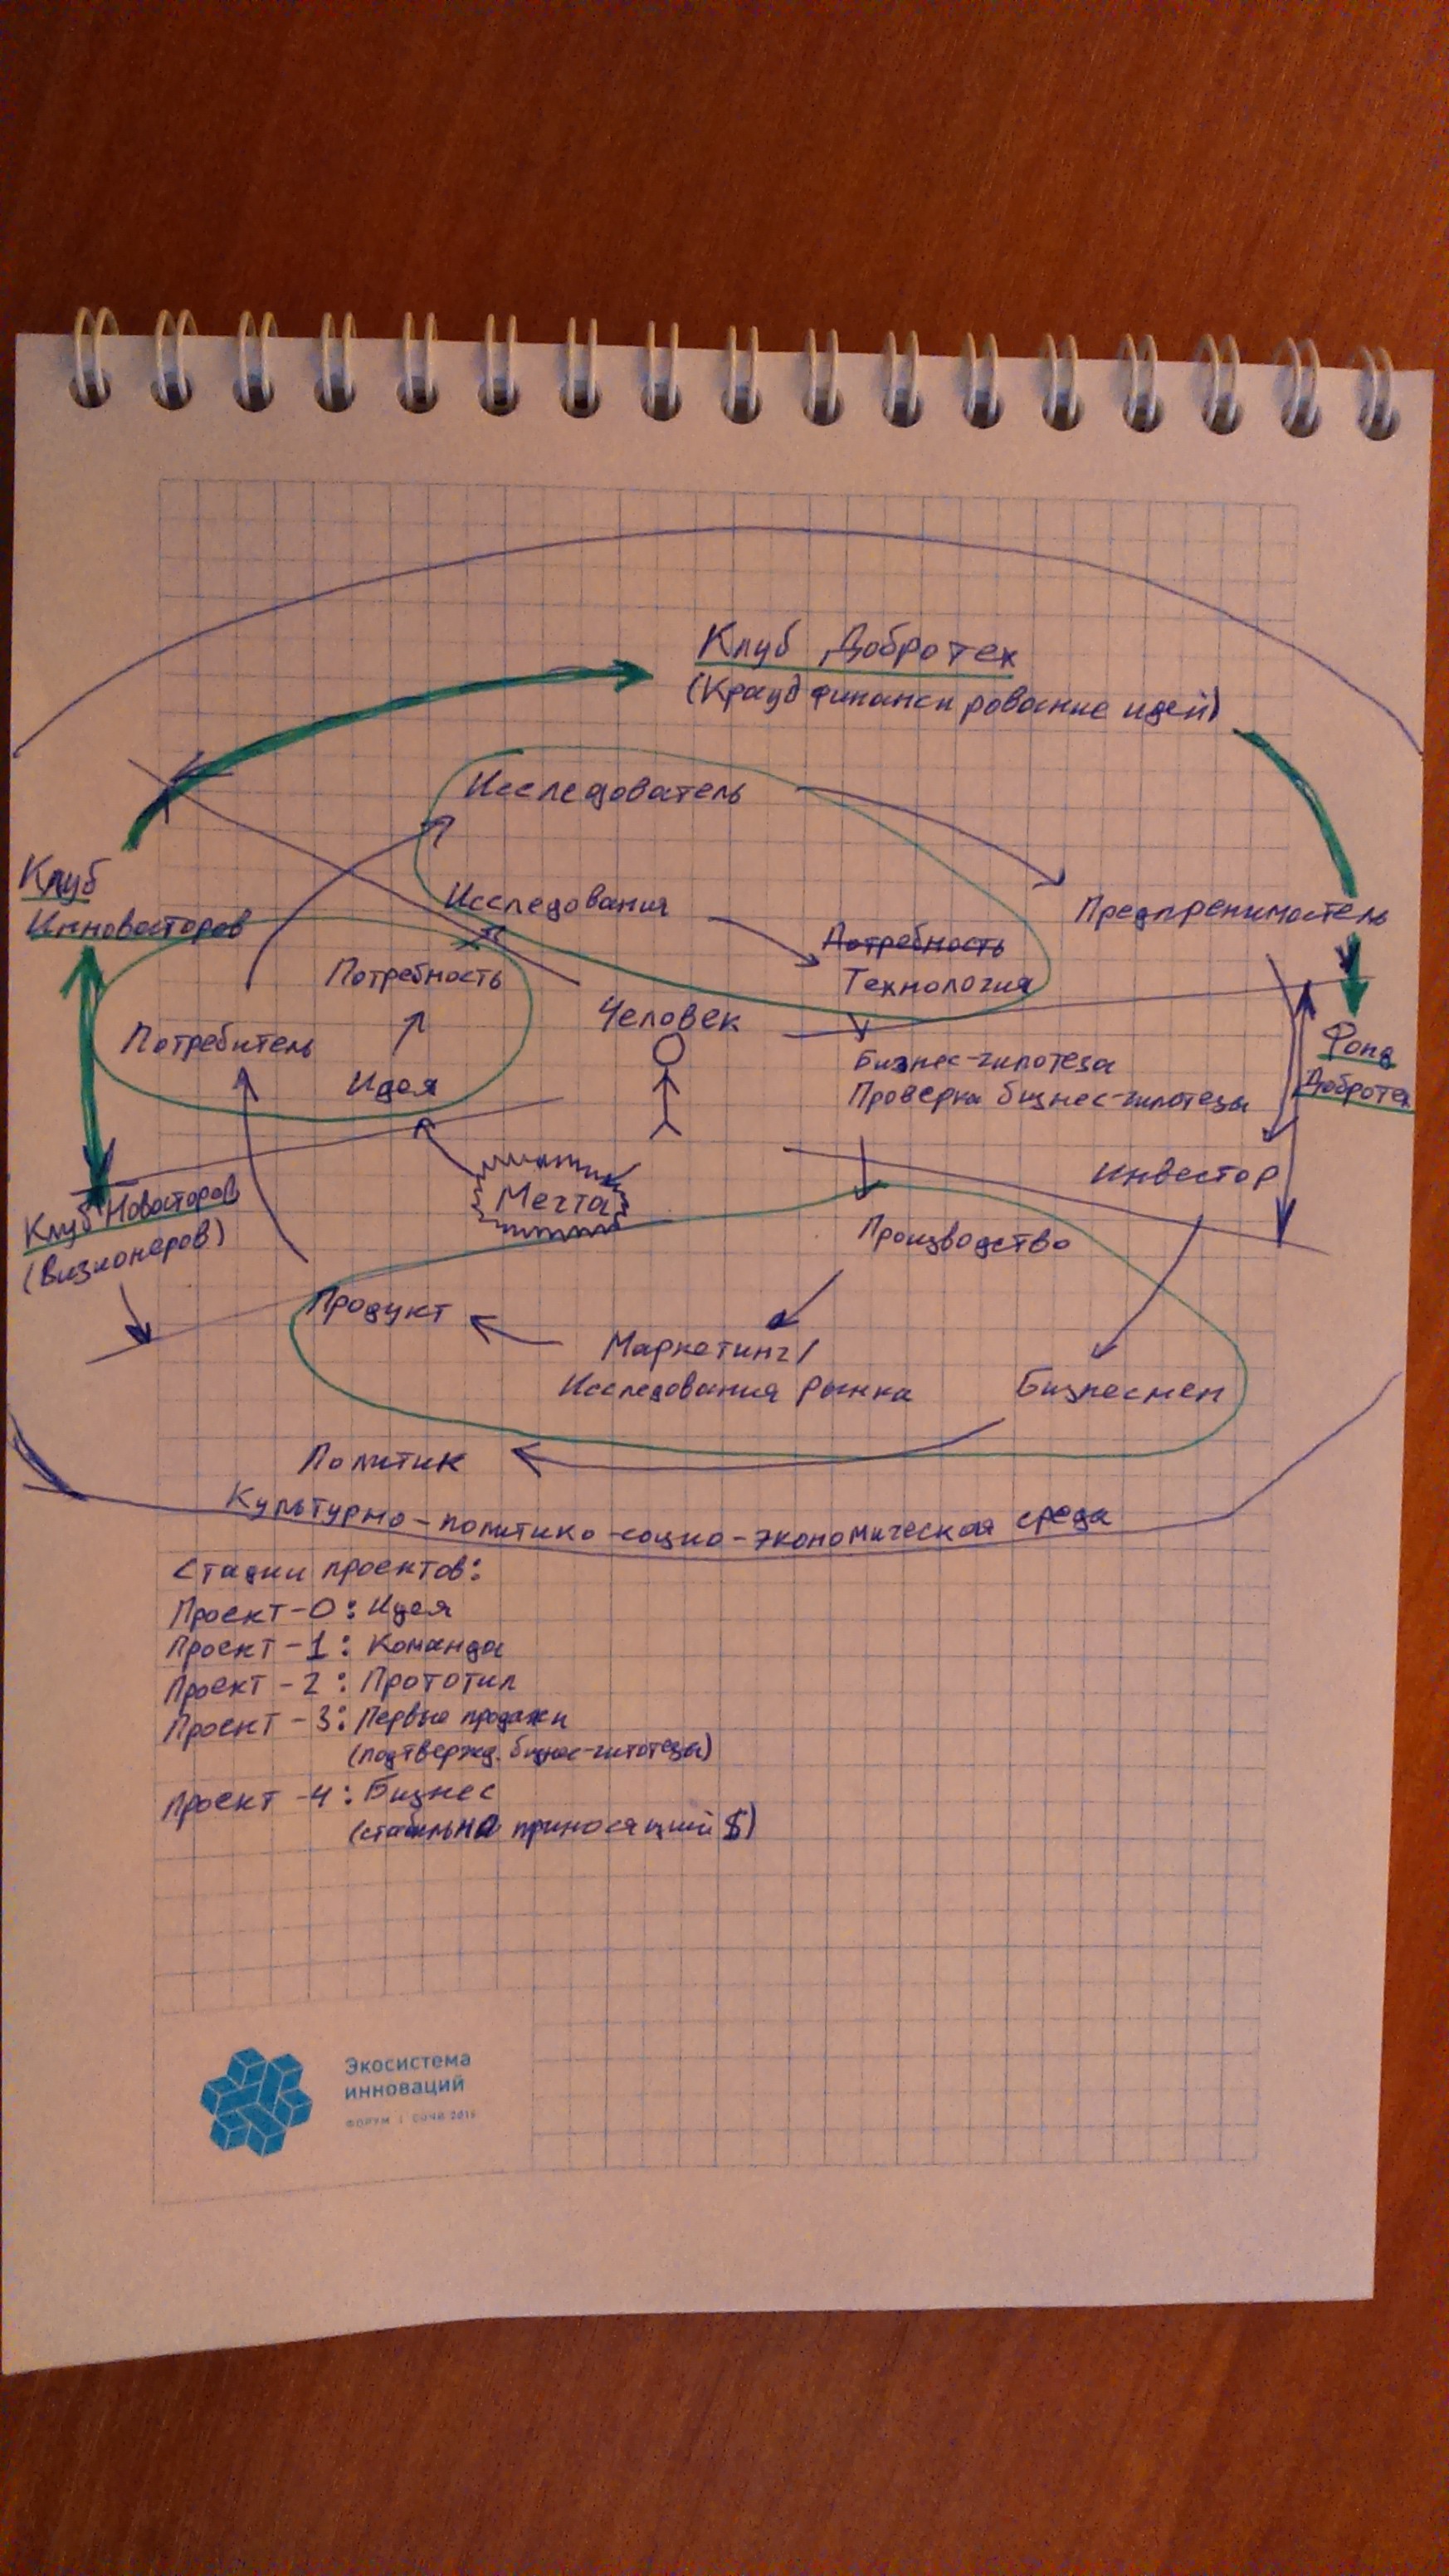 Клуб Добротех
(Крауд финансирование идей)
Исследователь
Клуб
Инноваторов
Исследования
Предприниматель
Потребность
Технология
Потребность
Человек
Потребитель
Идея
Бизнес-гипотеза
Проверка бизнес-гипотезы
Фонд
Добротех
Мечта
Инвестор
Клуб Новаторов
(Визионеров)
Производство
Продукт
Маркетинг/
Исследования рынка
Бизнесмен
Политик
Культурно-политико-социо-экономическая среда
Стадии проектов:
Проект-0: Идея
Проект-1: Команда
Проект-2: Прототип
Проект-3: Первые продажи
(подтвержд. бизнес-гипотезы)
Проект-4: Бизнес
(стабильно приносящий $)
Экосистема
инноваций
ФОРУМ | СОЧИ